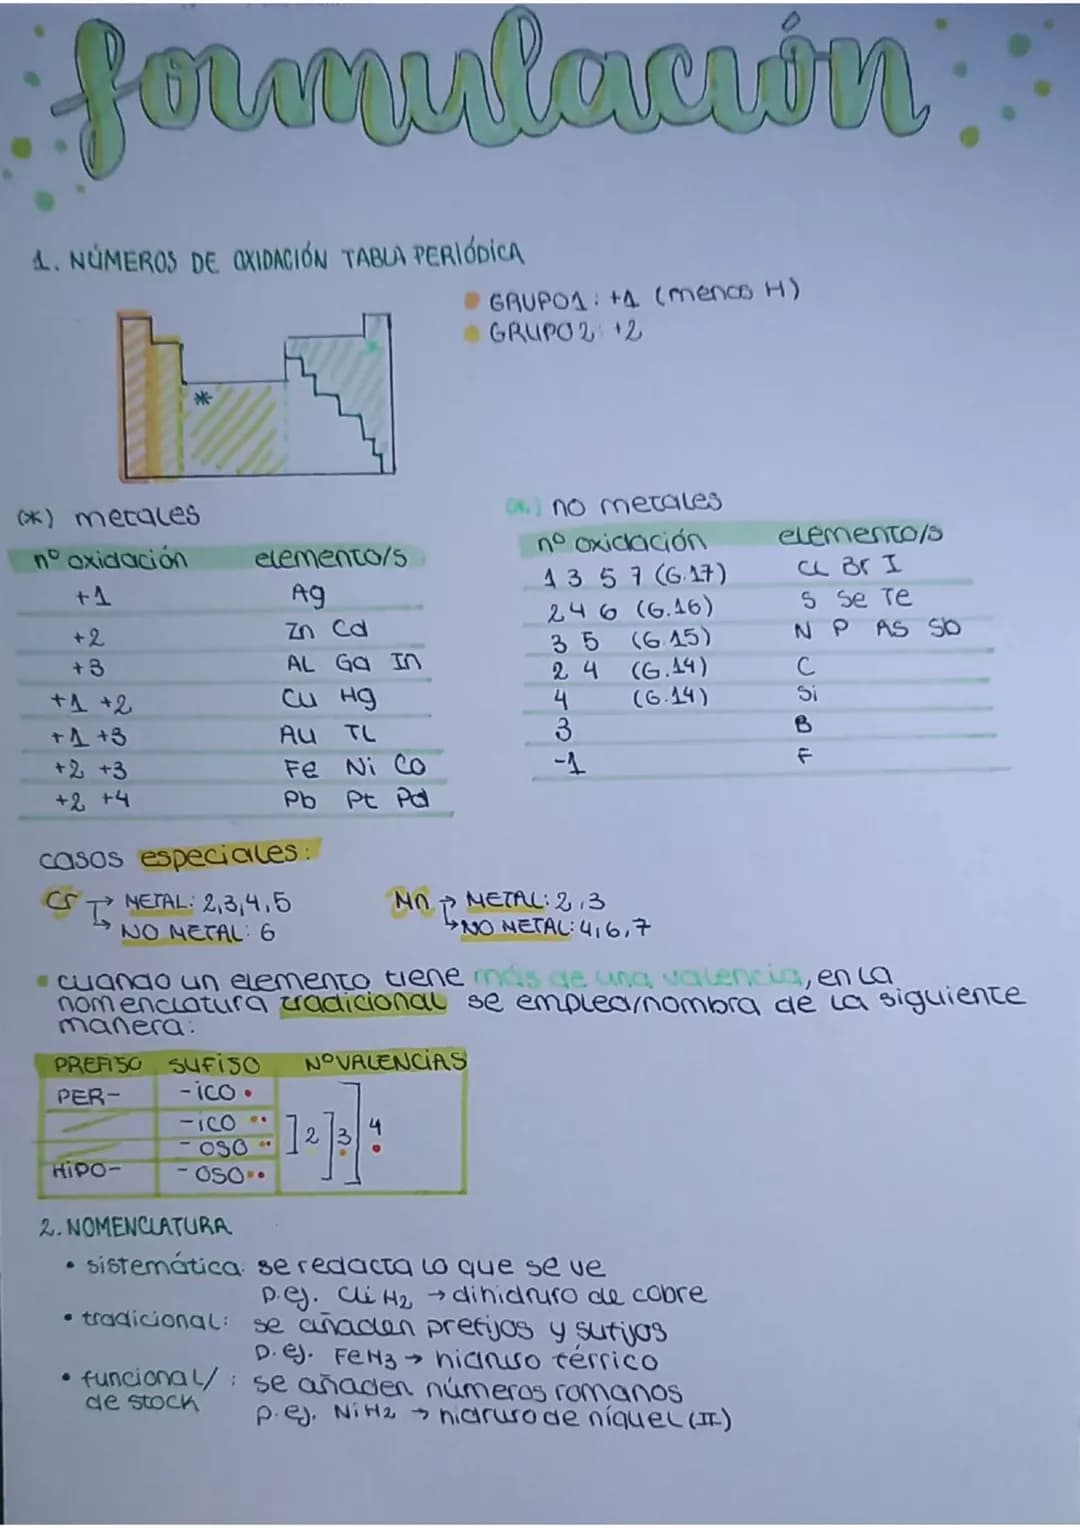 formulación
1. NÚMEROS DE OXIDACIÓN TABLA PERIÓDICA
GRUPO1: +1 (menos H)
GRUPO2: +2
*
(*) metales
nº oxidación elemento/s
+1 Ag
+2 Zn Cd
+3 AL Ga In
+1 +2 Cu Hg
+1 +3 Au TL
+2 +3 Fe Ni Co
+2 +4 Pb Pt Pd
(*) no metales
nº oxidación elemento/s
1 3 5 7 (G.17) CL Br I
2 4 6 (G.16) S Se Te
3 5 (G.15) N P AS Sb
2 4 (G.14) C
4 (G.14) Si
3 B
-1 F
casos especiales:
Cr → METAL: 2,3,4,5
→ NO METAL: 6
Mn → METAL: 2,3
→ NO METAL: 4,6,7
cuando un elemento tiene más de una valencia, en la
nomenclatura tradicional se emplea/nombra de la siguiente
manera:
PREFIJO SUFIJO Nº VALENCIAS
PER- -ICO
-ICO
-OSO
HIPO- -OSO
]2 ]3 ]4
2. NOMENCLATURA
• sistemática: se redacta lo que se ve
p.ej. CuH2 → dihidruro de cobre
• tradicional: se añaden prefijos y sufijos
p.ej. FeH3 → hidruro férrico
• funcional/ : se añaden números romanos
de stock
p.ej. NiH2 → hidruro de níquel (II)